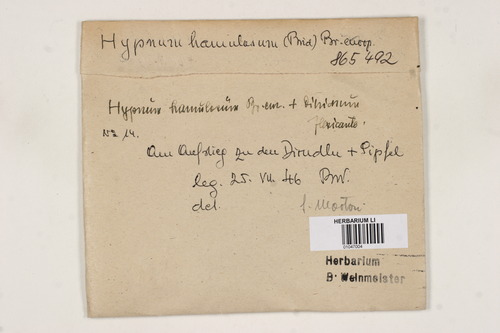 Hypnum hamulosum (Brid) Br. europ.
865 492
Hypnum hamulosum Br. eur. + Ditrichum
No 14. flexicaule.
Am Aufstieg zu den Dirndln + Gipfel
leg. 25. VII. 46 BW.
det. f. Morton
HERBARIUM LI
01047004
Herbarium
B. Weinmeister